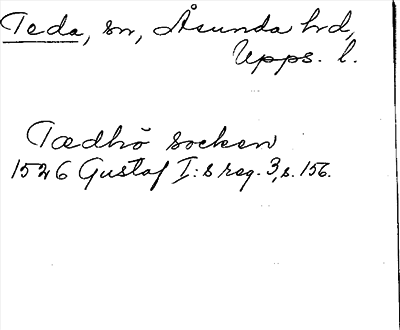 Teda, sn, Åsunda hd,
Upps. l.
Tædhrö socken
1526 Gustaf I:s reg. 3, s. 156.